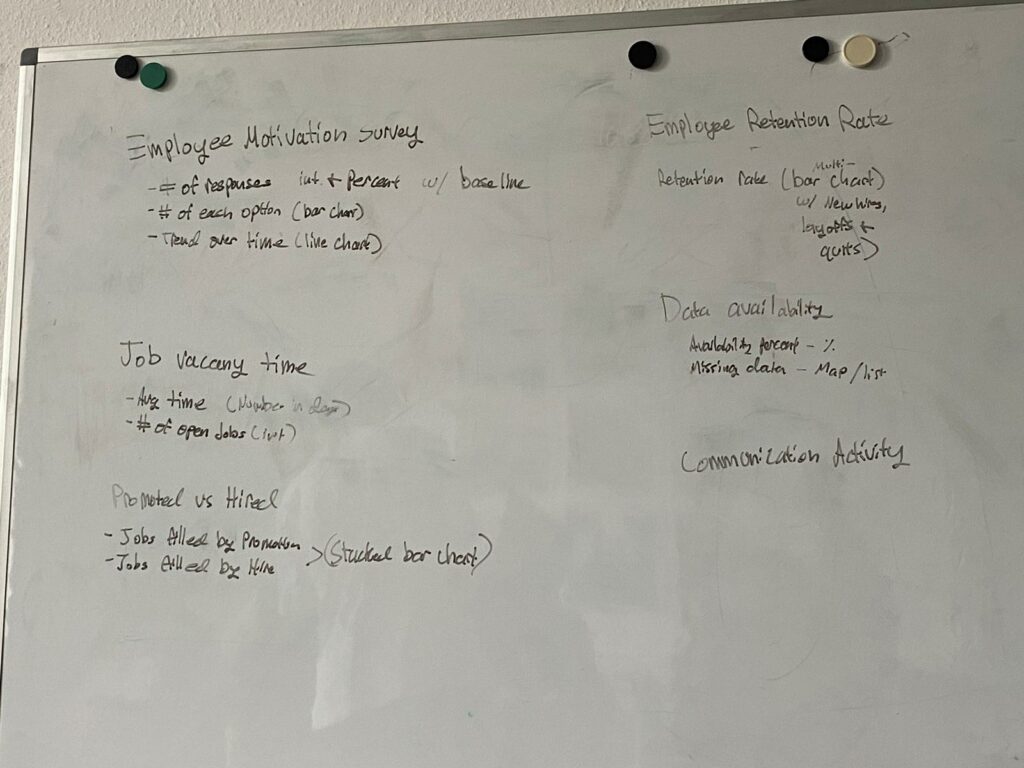 Employee Motivation Survey
- # of responses int. + Percent w/ baseline
- # of each option (bar char)
- Trend over time (line chart)
Job vacany time
- Avg time (Number in days)
- # of open Jobs (int)
Promoted vs Hired
- Jobs filled by Promotion
- Jobs filled by Hire
> (Stacked bar chart)
Employee Retention Rate
Multi-
Retention rate (bar chart)
w/ New hires,
layoffs +
quits)
Data availability
Availability percent - %
Missing data - Map/list
Communication Activity